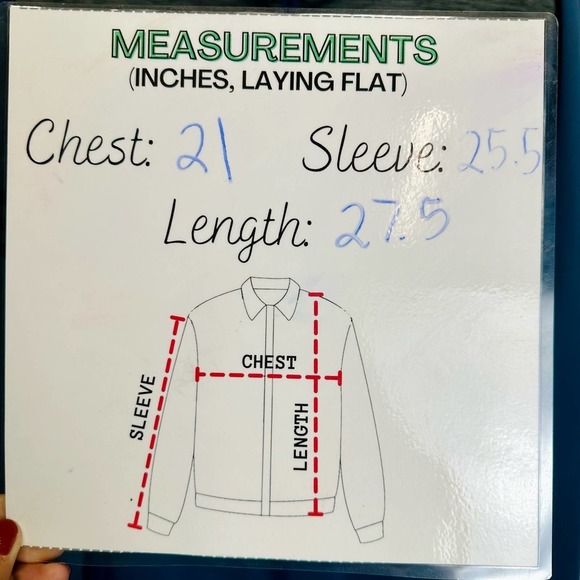 MEASUREMENTS
(INCHES, LAYING FLAT)
Chest: 21 Sleeve: 25.5
Length: 27.5
CHEST
SLEEVE
LENGTH